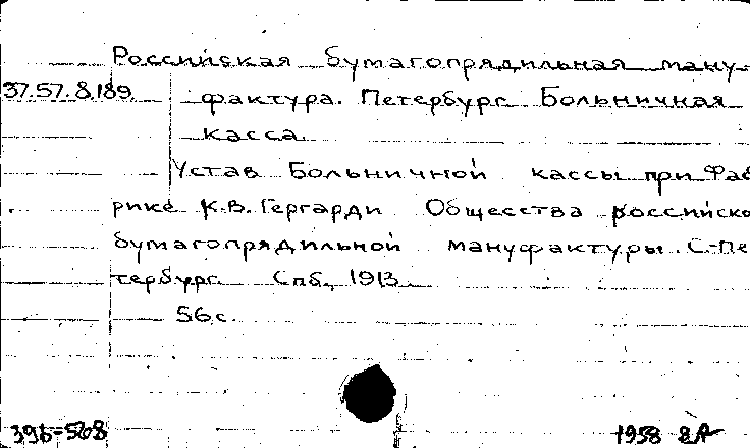 Российская бумагопрядильная ману-
37.57.8.189. фактура. Петербург. Больничная
касса.
Устав Больничной кассы при Фаб
рике К.В. Гергарди Общества российско
бумагопрядильной мануфактуры. С.-Пе
тербург. Спб., 1913.
56 с.
1958